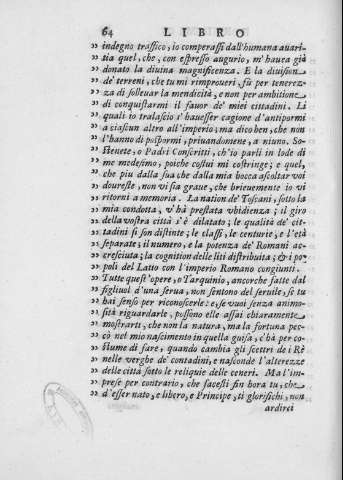 64 LIBRO
” indegno traffico, io comperassi dall'humana auari-
” tia quel, che, con espresso augurio, m'hauea già
” donato la diuina magnificenza. E la diuisione
” de' terreni, che tu mi rimproueri, fù per tenerez-
” za di solleuar la mendicità, e non per ambitione
” di conquistarmi il fauor de' miei cittadini. Li
” quali io tralascio s'hauesser cagione d'antipormi
” a ciascun altro all'imperio; ma dico ben, che non
” l'hanno di pospormi, priuandomene, a niuno. So-
” stenete, o Padri Conscritti, ch'io parli in lode di
” me medesimo, poiche costui mi costringe; e quel,
” che piu dalla sua che dalla mia bocca ascoltar voi
” doureste, non vi sia graue, che brieuemente io vi
” ritorni a memoria. La nation de' Toscani, sotto la
” mia condotta, v'hà prestata vbidienza; il giro
” della vostra città s'è dilatato; le qualità de' cit-
” tadini si son distinte; le classi, le centurie, e l'età
” separate; il numero, e la potenza de' Romani ac-
” cresciuta; la cognition delle liti distribuita; & i po-
” poli del Latio con l'imperio Romano congiunti.
” Tutte quest'opere, o Tarquinio, ancorche fatte dal
” figliuol d'una serua, non sentono del seruile, se tu
” hai senso per riconoscerle: e, se vuoi senza animo-
” sità riguardarle, possono elle assai chiaramente
” mostrarti, che non la natura, ma la fortuna pec-
” cò nel mio nascimento in quella guisa, c'hà per co-
” stume di fare, quando cambia gli scettri de i Rè
” nelle verghe de' contadini, e nasconde l'alterezze
” delle città sotto le reliquie delle ceneri. Ma l'im-
” prese per contrario, che facesti fin hora tu, che
” d'esser nato, e libero, e Principe, ti glorifichi, non
ardirei